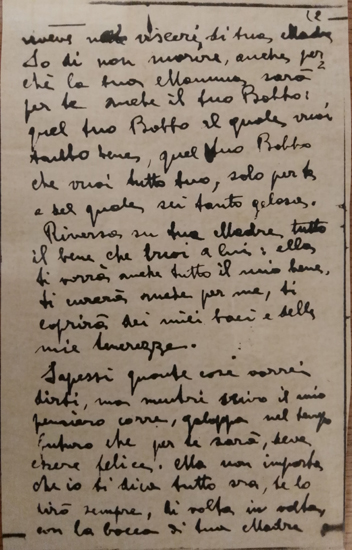 (2
muove nel visceri di tua Madre
So di non morire, anche per
chè la tua Mamma sarà
per te anche il tuo Bobbo:
quel tuo Bobbo al quale vuoi
tanto bene, quel tuo Bobbo
che vuoi tutto tuo, solo per te
e del quale sei tanto gelosa.
Riversa su tua Madre tutto
il bene che vuoi a lui: ella
ti vorrà anche tutto il mio bene,
ti curerà anche per me, ti
coprirà dei miei baci e delle
mie tenerezze.
Sapessi quante cose vorrei
dirti, ma mentre scrivo il mio
pensiero corre, galoppa nel tempo
futuro che per te sarà, deve
essere felice. Ma non importa
che io ti dica tutto ora, te lo
dirò sempre, di volta in volta,
con la bocca di tua Madre